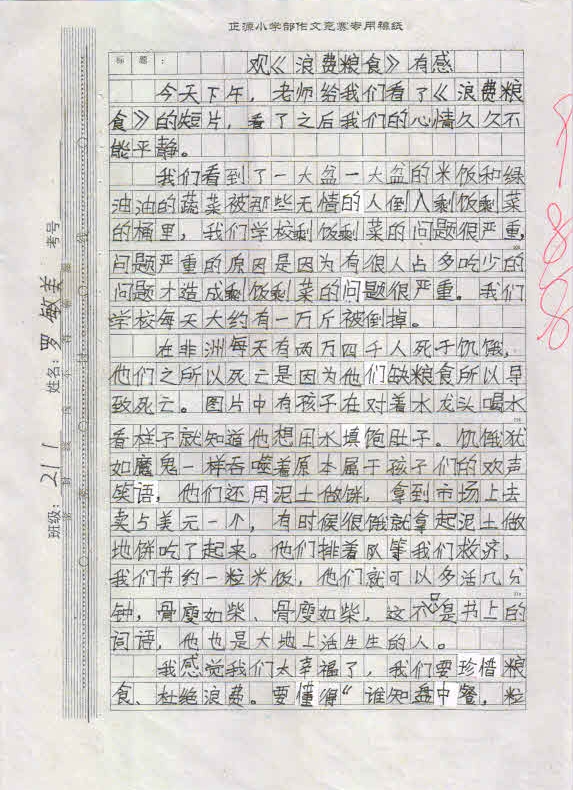 正源小学部作文竞赛专用稿纸
标题：
观《浪费粮食》有感
今天下午，老师给我们看了《浪费粮
食》的短片，看了之后我们的心情久久不
能平静。
我们看到了一大盆一大盆的米饭和绿
油油的蔬菜被那些无情的人倒入剩饭剩菜
的桶里，我们学校剩饭剩菜的问题很严重，
问题严重的原因是因为有很人占多吃少的
问题才造成剩饭剩菜的问题很严重。我们
学校每天大约有一万斤被倒掉。
在非洲每天有两万四千人死于饥饿，
他们之所以死亡是因为他们缺粮食所以导
致死亡。图片中有孩子在对着水龙头喝水
看样子就知道他想用水填饱肚子。饥饿犹
如魔鬼一样吞噬着原本属于孩子们的欢声
笑语，他们还用泥土做饼，拿到市场上去
卖5美元一个，有时候很饿就拿起泥土做
地饼吃了起来。他们排着队等我们救济，
我们节约一粒米饭，他们就可以多活几分
钟，骨瘦如柴、骨瘦如柴，这不只是书上的
词语，他也是大地上活生生的人。
我感觉我们太幸福了，我们要珍惜粮
食、杜绝浪费。要懂得“谁知盘中餐，粒
班级：211
姓名：罗敏美
考号